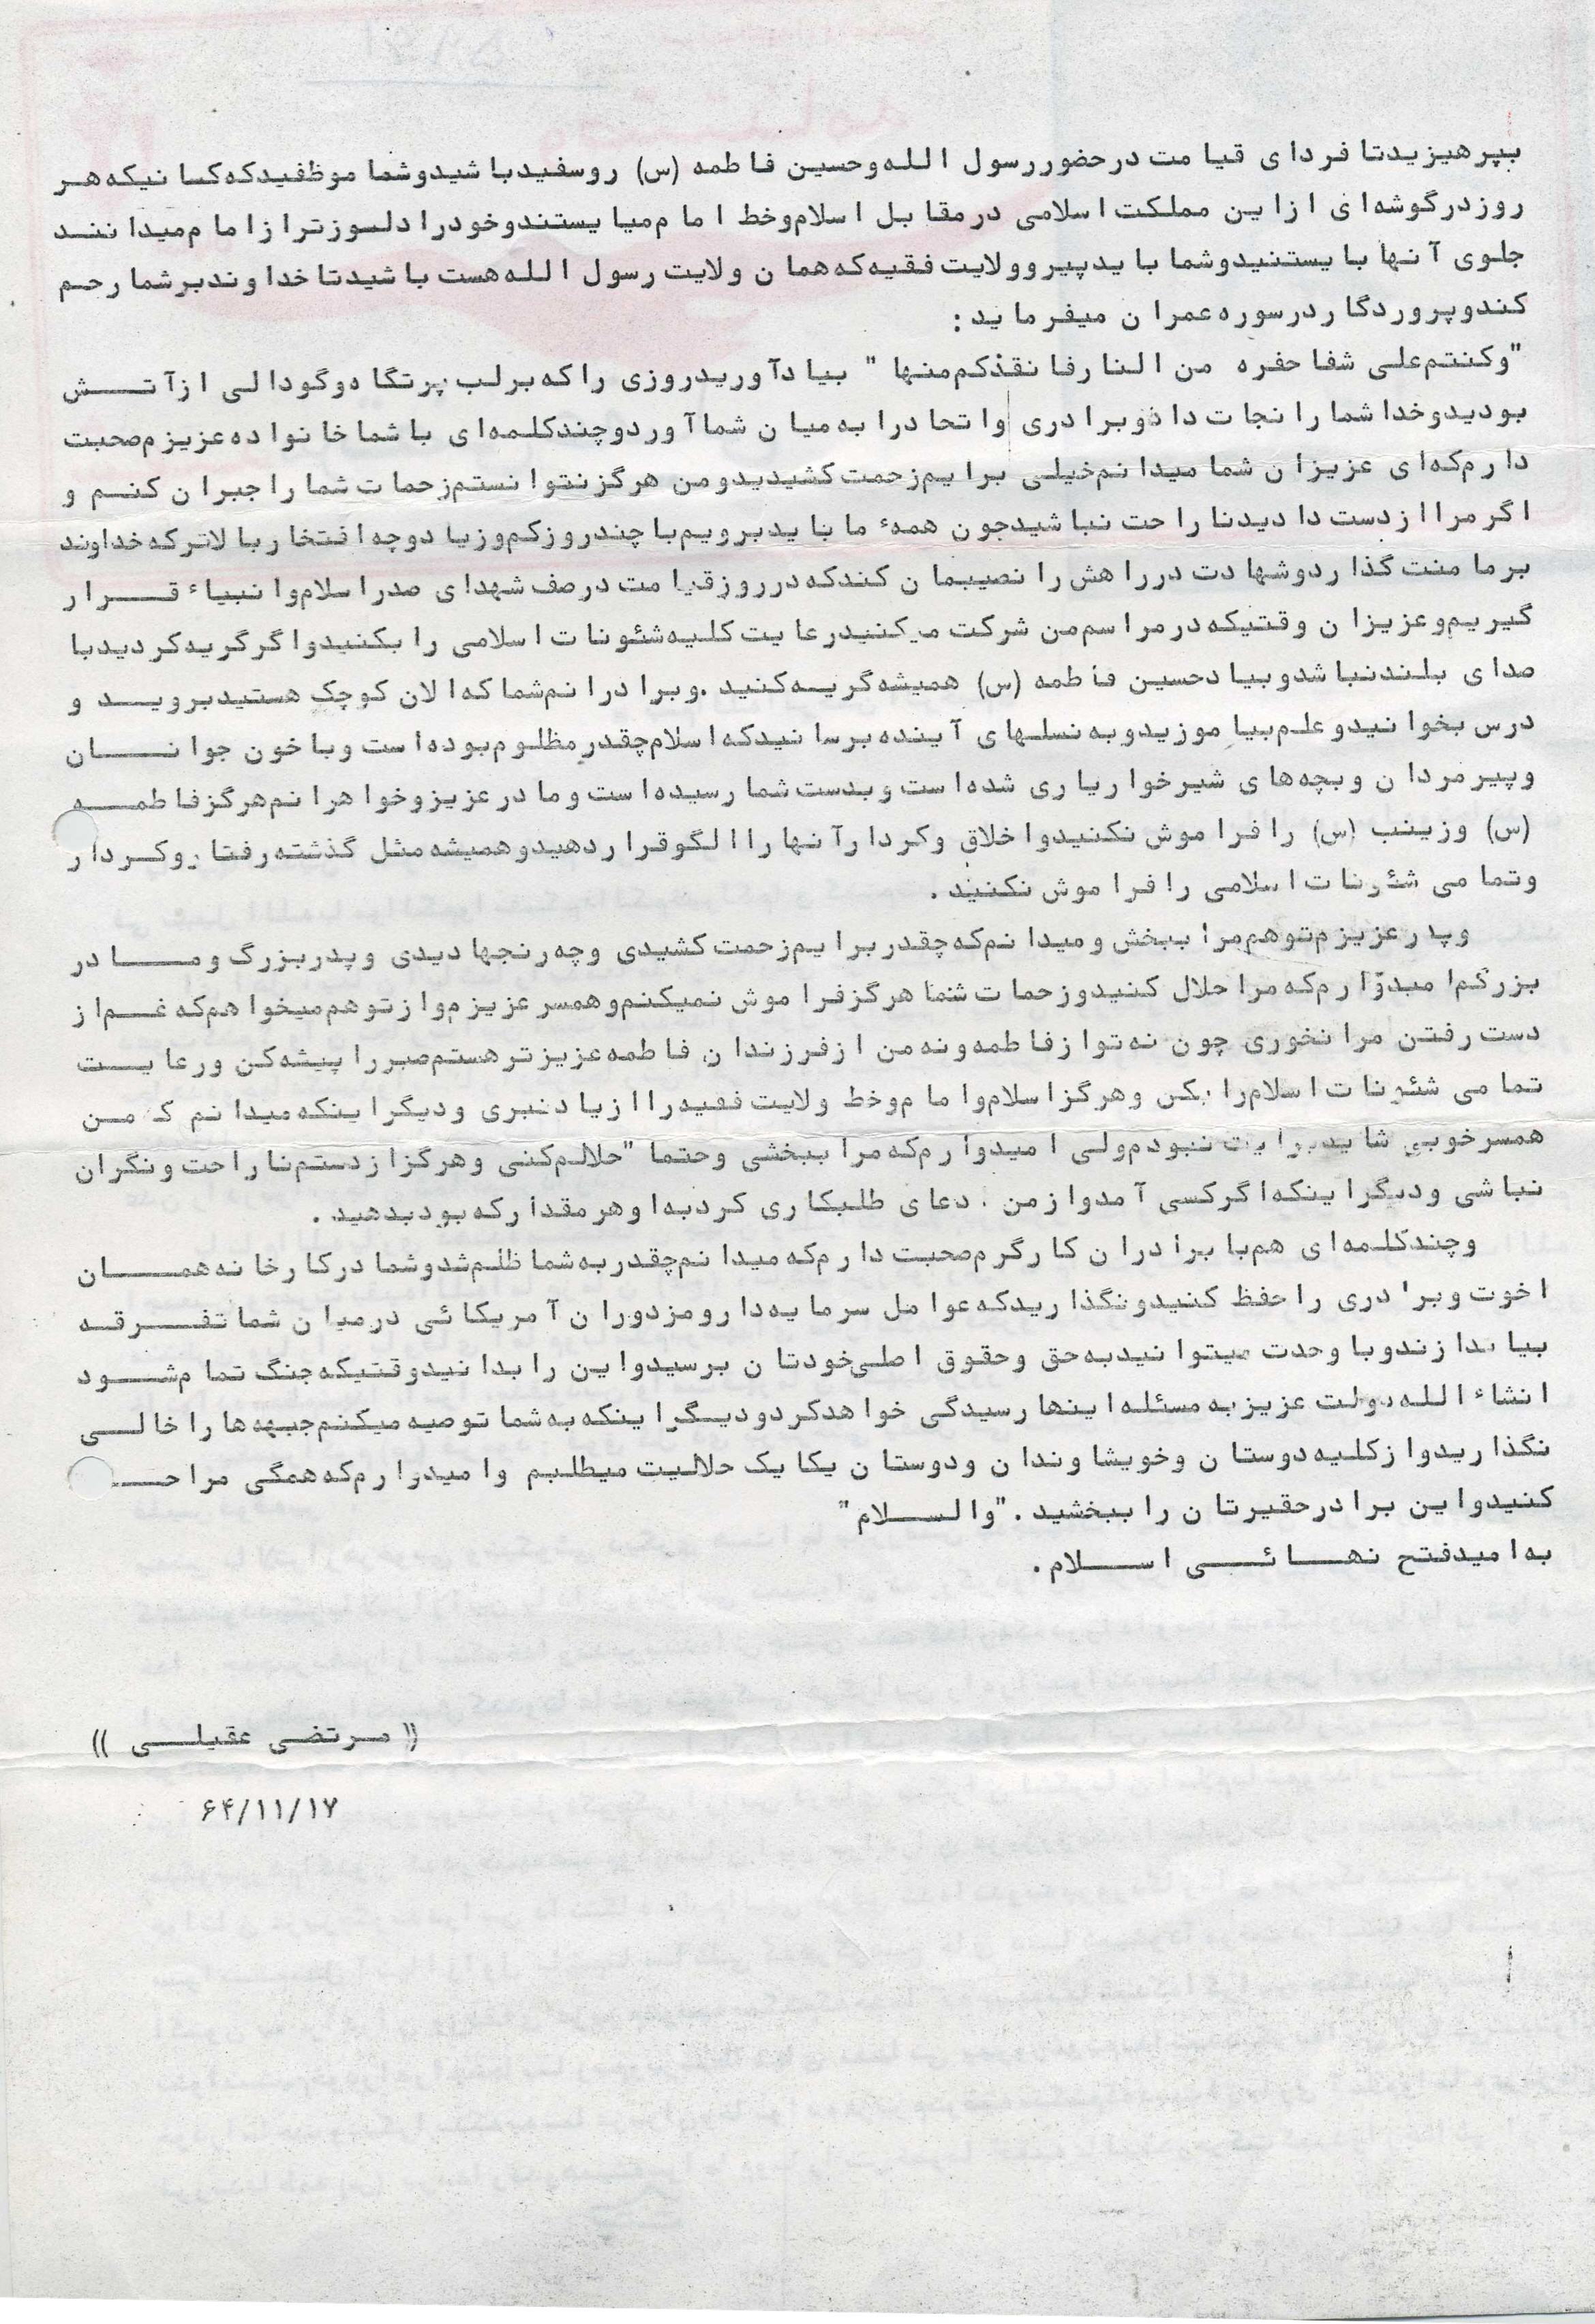 بپرهیزید تا فردای قیامت در حضور رسول الله و حسین فاطمه (س) روسفید باشید و شما موظفید که کسانیکه هر
روز در گوشه‌ای از این مملکت اسلامی در مقابل اسلام و خط امام میایستند و خود را دلسوزتر از امام میدانند
جلوی آنها بایستنید و شما باید پیرو ولایت فقیه که همان ولایت رسول الله هست باشید تا خداوند بر شما رحم
کند و پروردگار در سوره عمران میفرماید :
"وکنتم علی شفا حفره من النار فانقذکم منها " بیاد آورید روزی را که بر لب پرتگاه و گودالی از آتش
بودید و خدا شما را نجات داد و برادری و اتحاد را به میان شما آورد و چند کلمه‌ای با شما خانواده عزیزم صحبت
دارم که ای عزیزان شما میدانم خیلی برایم زحمت کشیدید و من هرگز نتوانستم زحمات شما را جبران کنم و
اگر مرا از دست دادید ناراحت نباشید چون همهٔ ما باید برویم با چند روز کم و زیاد و چه افتخار بالاتر که خداوند
بر ما منت گذارد و شهادت در راهش را نصیبمان کند که در روز قیامت در صف شهدای صدر اسلام و انبیاء قرار
گیریم و عزیزان وقتیکه در مراسم من شرکت میکنید رعایت کلیه شئونات اسلامی را بکنید و اگر گریه کردید با
صدای بلند نباشد و بیاد حسین فاطمه (س) همیشه گریه کنید . و برادرانم شما که الان کوچک هستید بروید و
درس بخوانید و علم بیاموزید و به نسلهای آینده برسانید که اسلام چقدر مظلوم بوده است و با خون جوانان
و پیرمردان و بچه‌های شیرخوار یاری شده است و بدست شما رسیده است و مادر عزیز و خواهرانم هرگز فاطمه
(س) و زینب (س) را فراموش نکنید و اخلاق و کردار آنها را الگو قرار دهید و همیشه مثل گذشته رفتار و کردار
و تمامی شئونات اسلامی را فراموش نکنید .
و پدر عزیزم تو هم مرا ببخش و میدانم که چقدر برایم زحمت کشیدی و چه رنجها دیدی و پدربزرگ و مادر
بزرگم امیدوارم که مرا حلال کنید و زحمات شما هرگز فراموش نمیکنم و همسر عزیزم و از تو هم میخواهم که غم از
دست رفتن مرا نخوری چون نه تو از فاطمه و نه من از فرزندان فاطمه عزیزتر هستم صبر را پیشه کن و رعایت
تمامی شئونات اسلام را بکن و هرگز اسلام و امام و خط ولایت فقیه را از یاد نبری و دیگر اینکه میدانم که من
همسر خوبی شاید برایت نبودم ولی امیدوارم که مرا ببخشی و حتما "حلالم کنی و هرگز از دستم ناراحت و نگران
نباشی و دیگر اینکه اگر کسی آمد و از من . دعای طلبکاری کرد به او هر مقدار که بود بدهید .
و چند کلمه‌ای هم با برادران کارگرم صحبت دارم که میدانم چقدر به شما ظلم شد و شما در کارخانه همان
اخوت و برادری را حفظ کنید و نگذارید که عوامل سرمایه‌دار و مزدوران آمریکائی در میان شما تفرقه
بیاندازند و با وحدت میتوانید به حق و حقوق اصلی خودتان برسید و این را بدانید وقتیکه جنگ تمام شود
انشاء الله دولت عزیز به مسئله اینها رسیدگی خواهد کرد و دیگر اینکه به شما توصیه میکنم جبهه‌ها را خالی
نگذارید و از کلیه دوستان و خویشاوندان و دوستان یکایک حلالیت میطلبم و امیدوارم که همگی مرا حـ
کنید و این برادر حقیرتان را ببخشید . "والسلام"
به امید فتح نهائی اسلام .
(( مرتضی عقیلی ))
۶۴/۱۱/۱۷